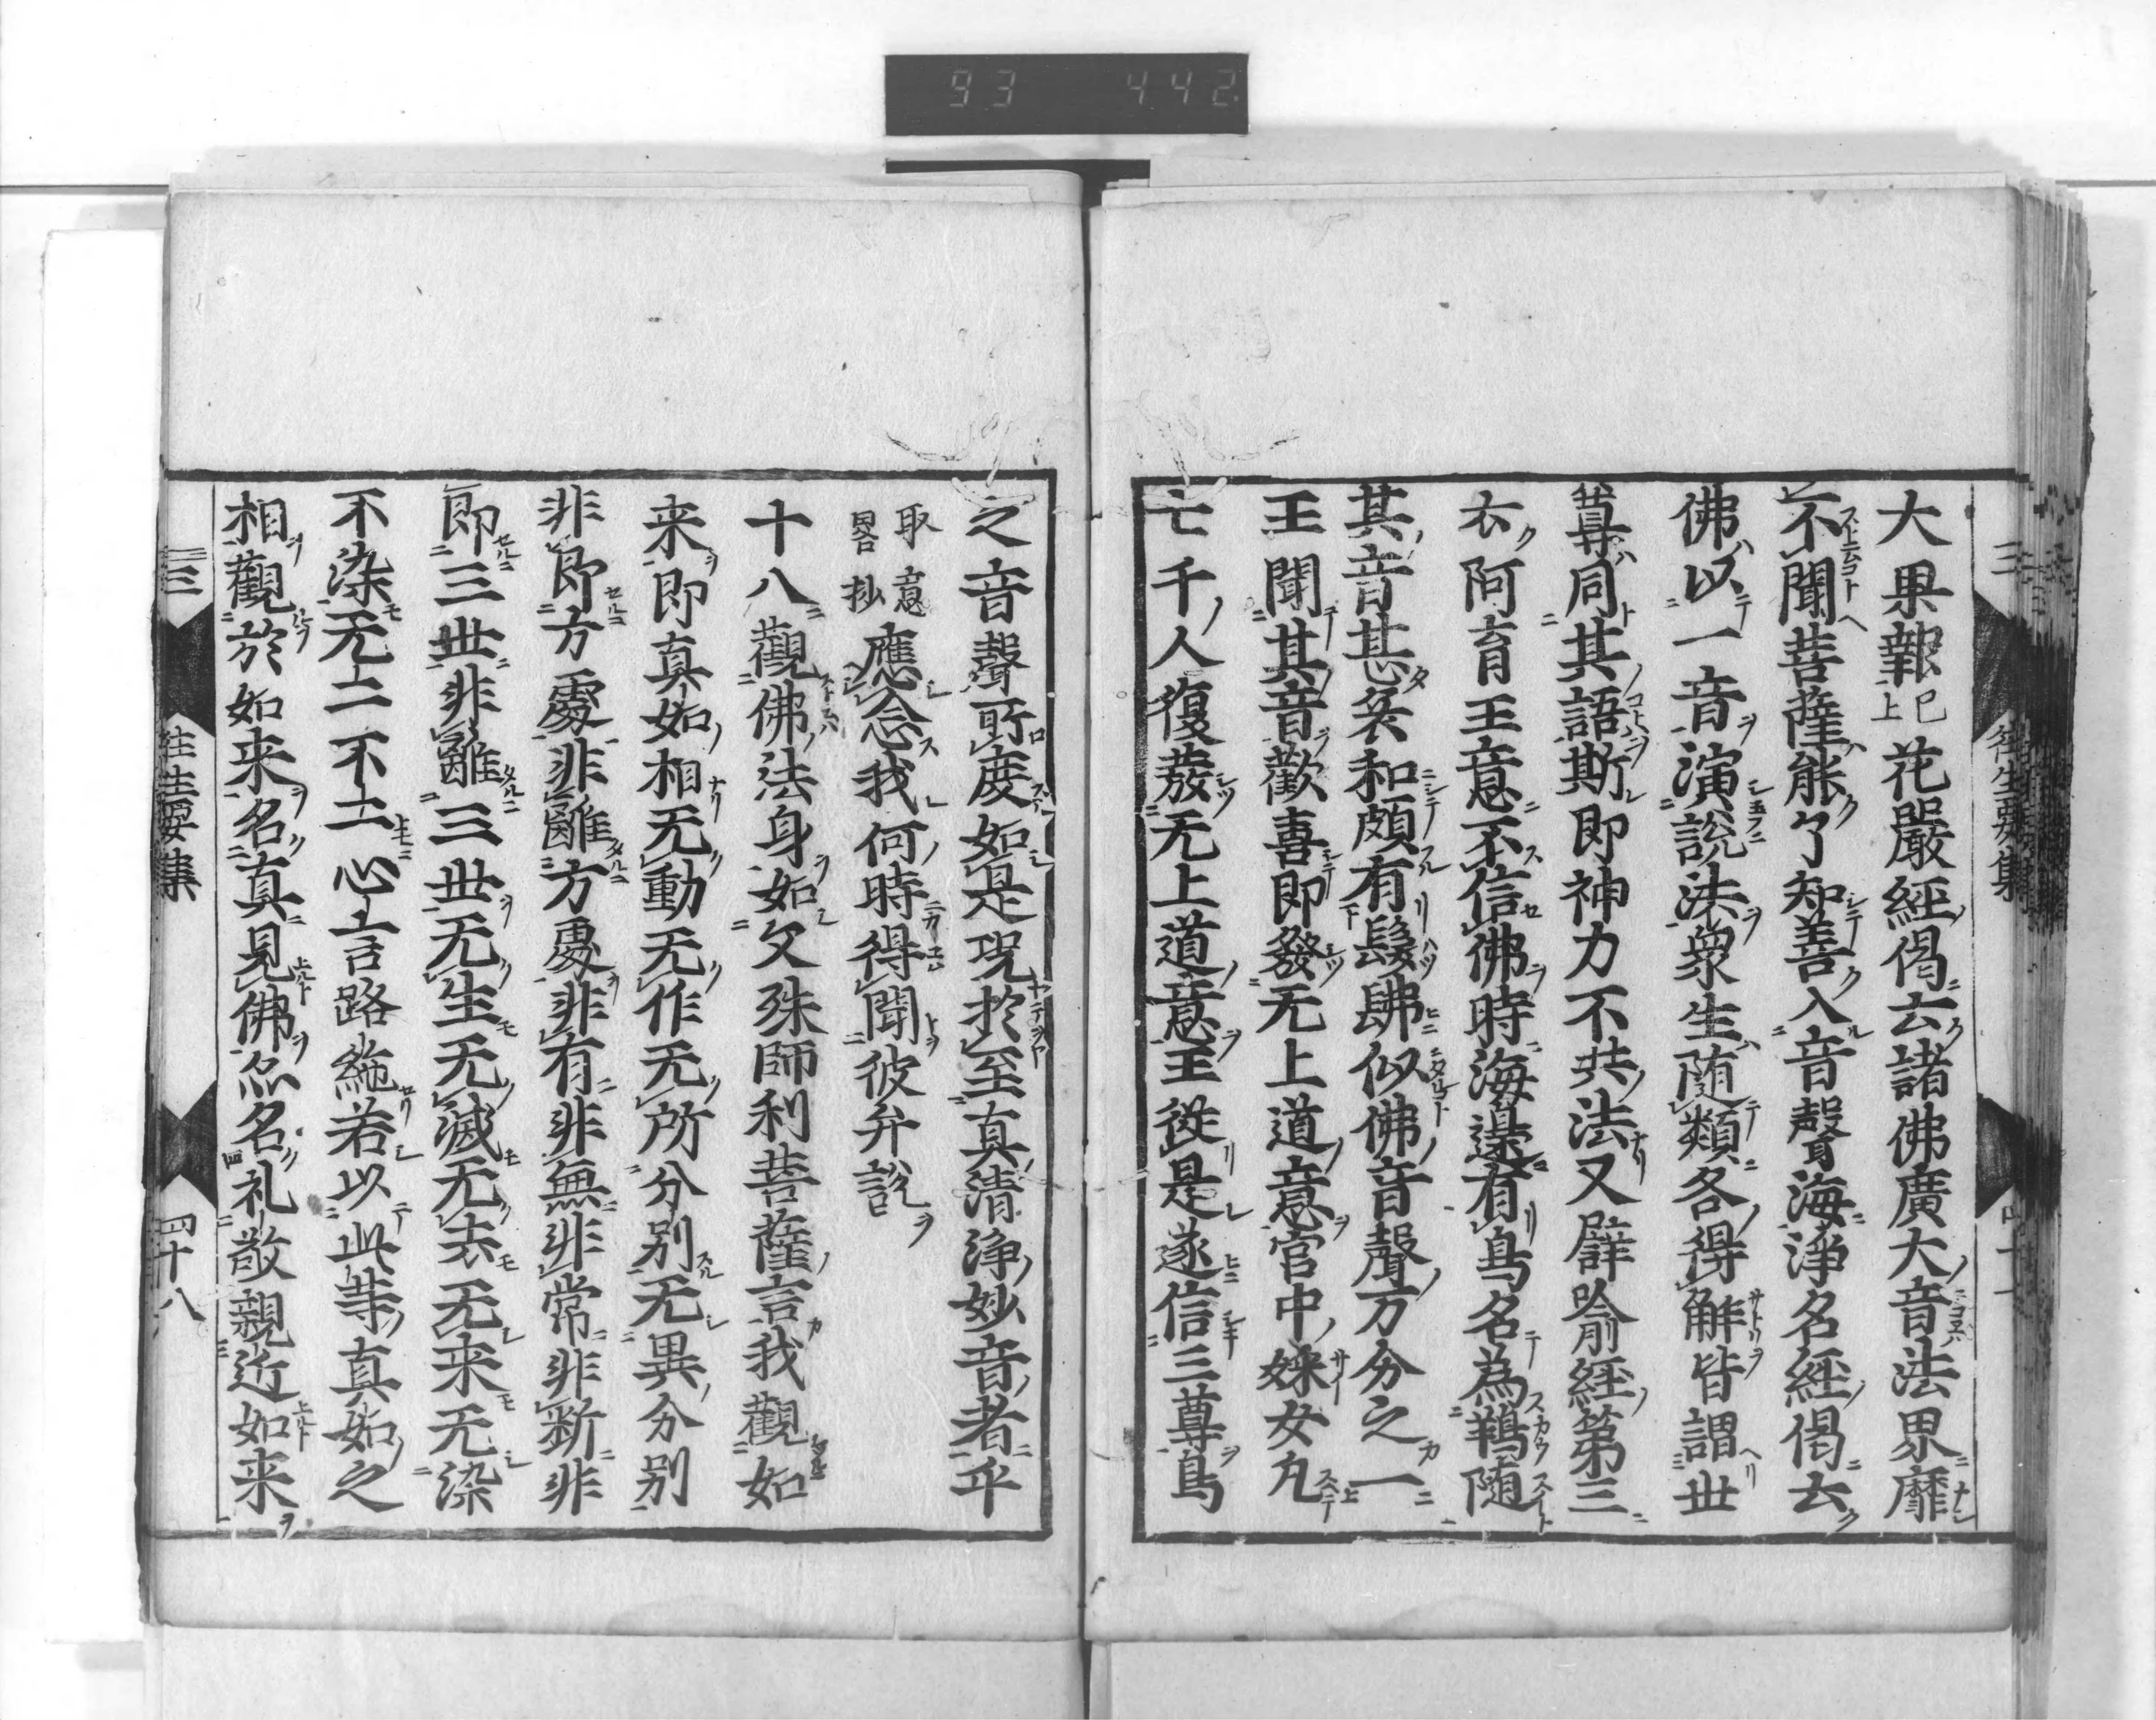 93 442
大果報已上花嚴經偈云諸佛廣大音法界靡
不聞菩薩能了知善入音聲海淨名經偈云
佛以一音演說法衆生随類各得解皆謂世
尊同其語斯即神力不共法又譬喩經第三
云阿育王意不信佛時海邊有鳥名為鵯随
其音甚哀和頗有髣髴似佛音聲万分之一
王聞其音歡喜即發无上道意宮中婇女九
七千人復發无上道意王從是遂信三尊鳥
之音聲所度如是況於至真清淨妙音者乎
取意
畧抄應念我何時得聞彼弁說
十八觀佛法身如文殊師利菩薩言我觀如
来即真如相无動无作无所分别无異分别
非即方處非離方處非有非無非常非斷非
即三世非離三世无生无滅无去无来无染
不染无二不二心言路絶若以此等真如之
相觀於如来名真見佛亦名礼敬親近如来
三 往生要集 四十八
往生要集